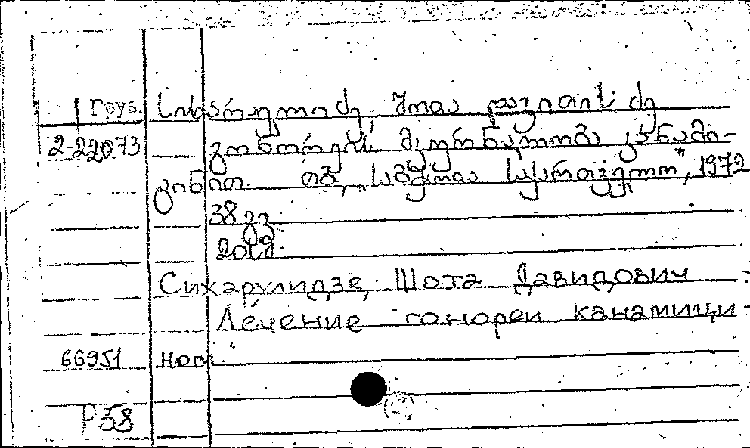 Груз. სიხარულიძე, შოთა დავითის ძე
2-22073 გონორეის მკურნალობა კანამი-
ცინით. თბ., „საბჭოთა საქართველო", 1972
38 გვ.
Сихарулидзе, Шота Давидович
Лечение гонореи канамици-
66951 ном.
P58